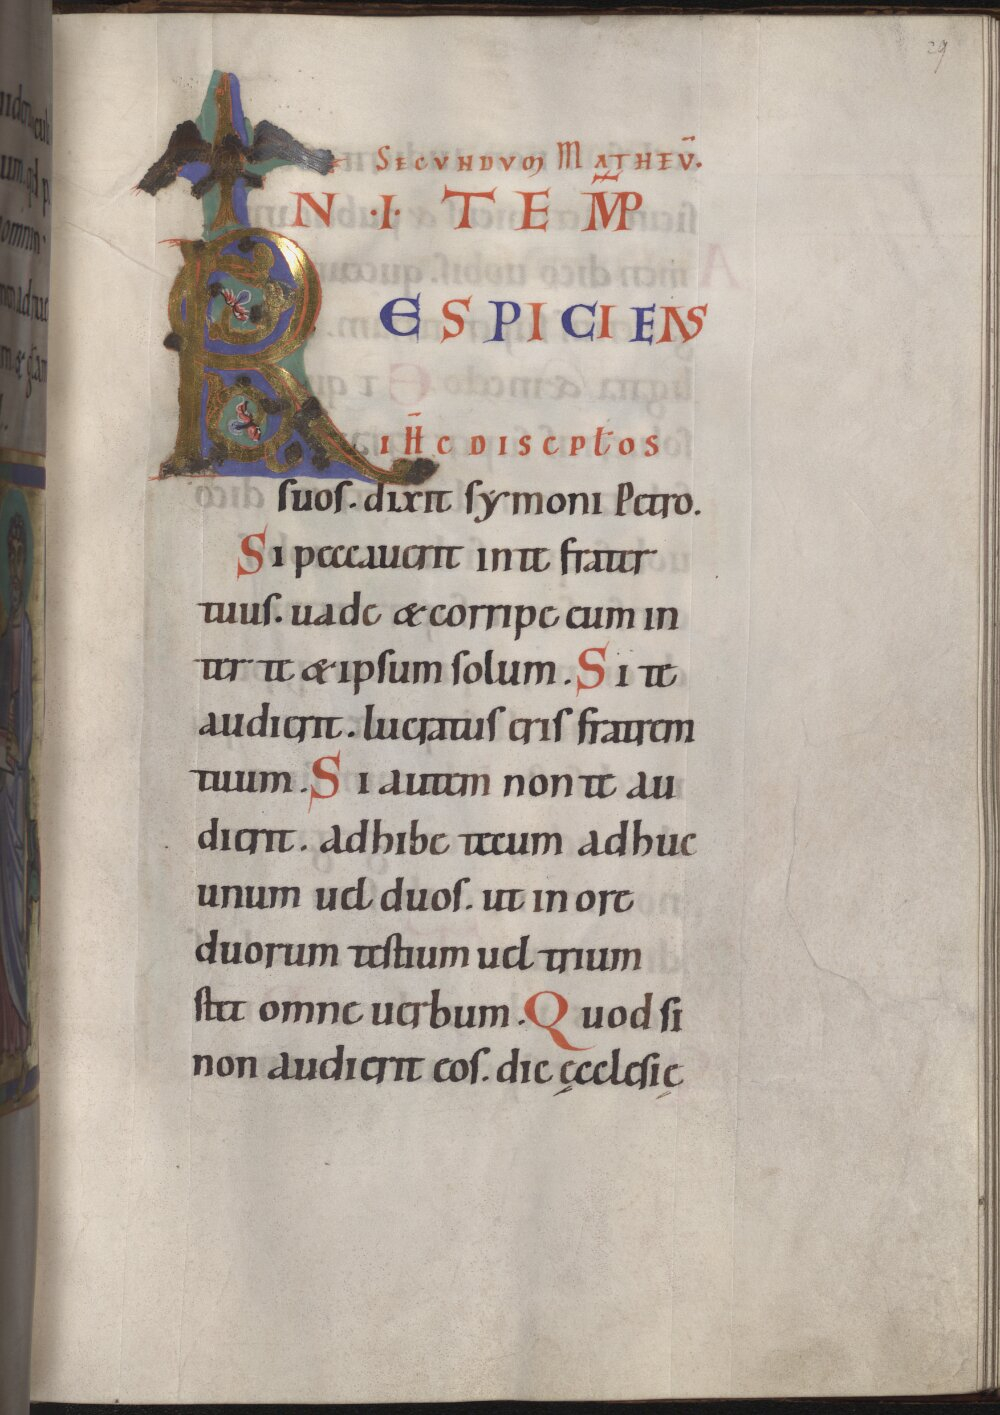 29
SECUNDUM MATHEŪ.
IN ·I· TEMP̄
RESPICIENS
IHC̄ DISCPŁOS
suos. dixit symoni Petro.
Si peccauerit in te frater
tuus. uade & corripe eum in
ter te & ipsum solum. Si te
audierit. lucratus eris fratrem
tuum. Si autem non te au
dierit. adhibe tecum adhuc
unum uel duos. ut in ore
duorum testium uel trium
stet omne uerbum. Quod si
non audierit eos. dic ęcclesię